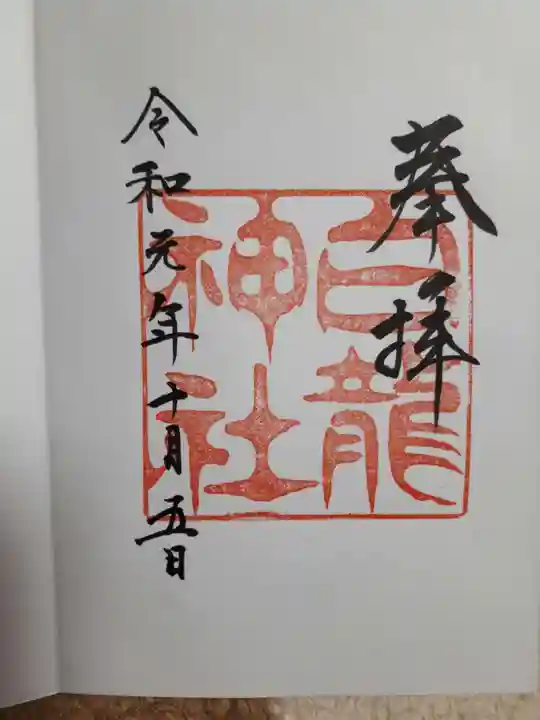 奉拝
白龍神社
令和元年十月五日